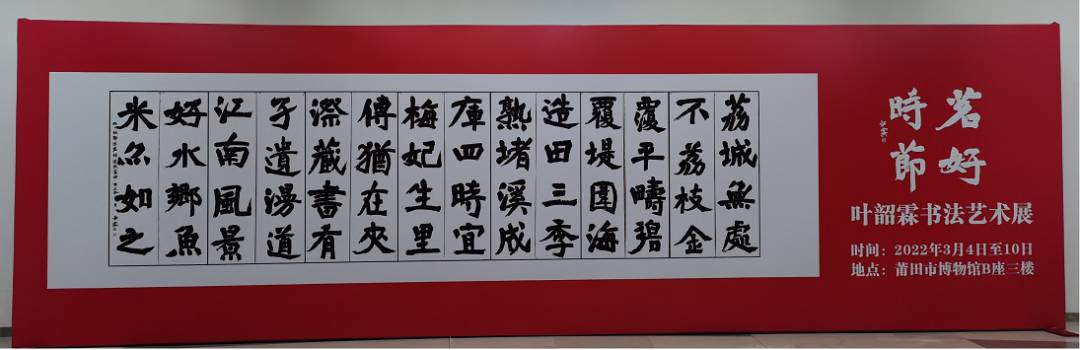 荔城無處
不荔枝金
覆平疇碧
覆堤圍海
造田三季
熟堵溪成
庫四時宜
梅妃生里
傳猶在夾
漈藏書有
孑遺漫道
江南風景
好水鄉魚
米亦如之
茗好
時節
叶韶霖书法艺术展
时间：2022年3月4日至10日
地点：莆田市博物馆B座三楼